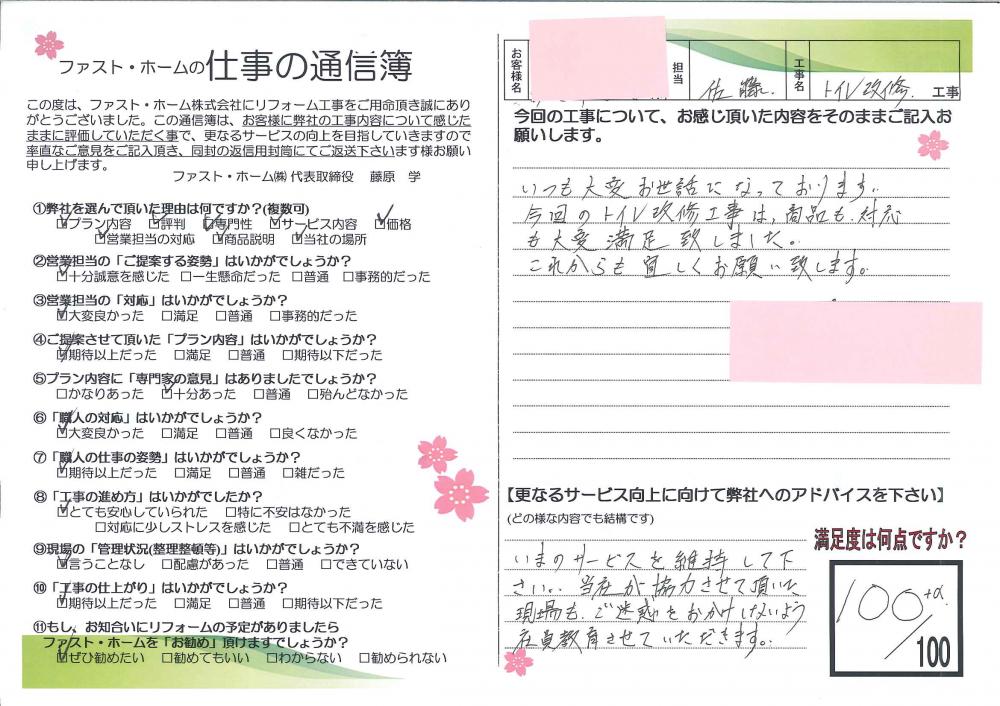 ファスト・ホームの仕事の通信簿
この度は、ファスト・ホーム株式会社にリフォーム工事をご用命頂き誠にあり
がとうございました。この通信簿は、お客様に弊社の工事内容について感じた
ままに評価していただく事で、更なるサービスの向上を目指していきますので
率直なご意見をご記入頂き、同封の返信用封筒にてご返送下さいます様お願い
申し上げます。
ファスト・ホーム㈱ 代表取締役 藤原 学
①弊社を選んで頂いた理由は何ですか?(複数可)
☑プラン内容 ☑評判 ☑専門性 ☑サービス内容 ☑価格
☑営業担当の対応 ☑商品説明 ☑当社の場所
②営業担当の「ご提案する姿勢」はいかがでしょうか?
☑十分誠意を感じた □一生懸命だった □普通 □事務的だった
③営業担当の「対応」はいかがでしょうか?
☑大変良かった □満足 □普通 □事務的だった
④ご提案させて頂いた「プラン内容」はいかがでしょうか?
☑期待以上だった □満足 □普通 □期待以下だった
⑤プラン内容に「専門家の意見」はありましたでしょうか?
□かなりあった ☑十分あった □普通 □殆んどなかった
⑥「職人の対応」はいかがでしょうか?
☑大変良かった □満足 □普通 □良くなかった
⑦「職人の仕事の姿勢」はいかがでしょうか?
☑期待以上だった □満足 □普通 □雑だった
⑧「工事の進め方」はいかがでしたか?
☑とても安心していられた □特に不安はなかった
□対応に少しストレスを感じた □とても不満を感じた
⑨現場の「管理状況(整理整頓等)」はいかがでしょうか?
☑言うことなし □配慮があった □普通 □できていない
⑩「工事の仕上がり」はいかがでしょうか?
☑期待以上だった □満足 □普通 □期待以下だった
⑪もし、お知合いにリフォームの予定がありましたら
ファスト・ホームを「お勧め」頂けますでしょうか?
☑ぜひ勧めたい □勧めてもいい □わからない □勧められない
お客様名 担当 佐藤. 工事名 トイレ改修. 工事
今回の工事について、お感じ頂いた内容をそのままご記入お
願いします。
いつも大変お世話になっております。
今回のトイレ改修工事は、商品も対応
も大変満足致しました。
これからも宜しくお願い致します。
【更なるサービス向上に向けて弊社へのアドバイスを下さい】
(どの様な内容でも結構です)
いまのサービスを維持して下
さい。当社が協力させて頂いた
現場も、ご迷惑をおかけしないよう
社員教育させていただきます。
満足度は何点ですか?
100+α
/100